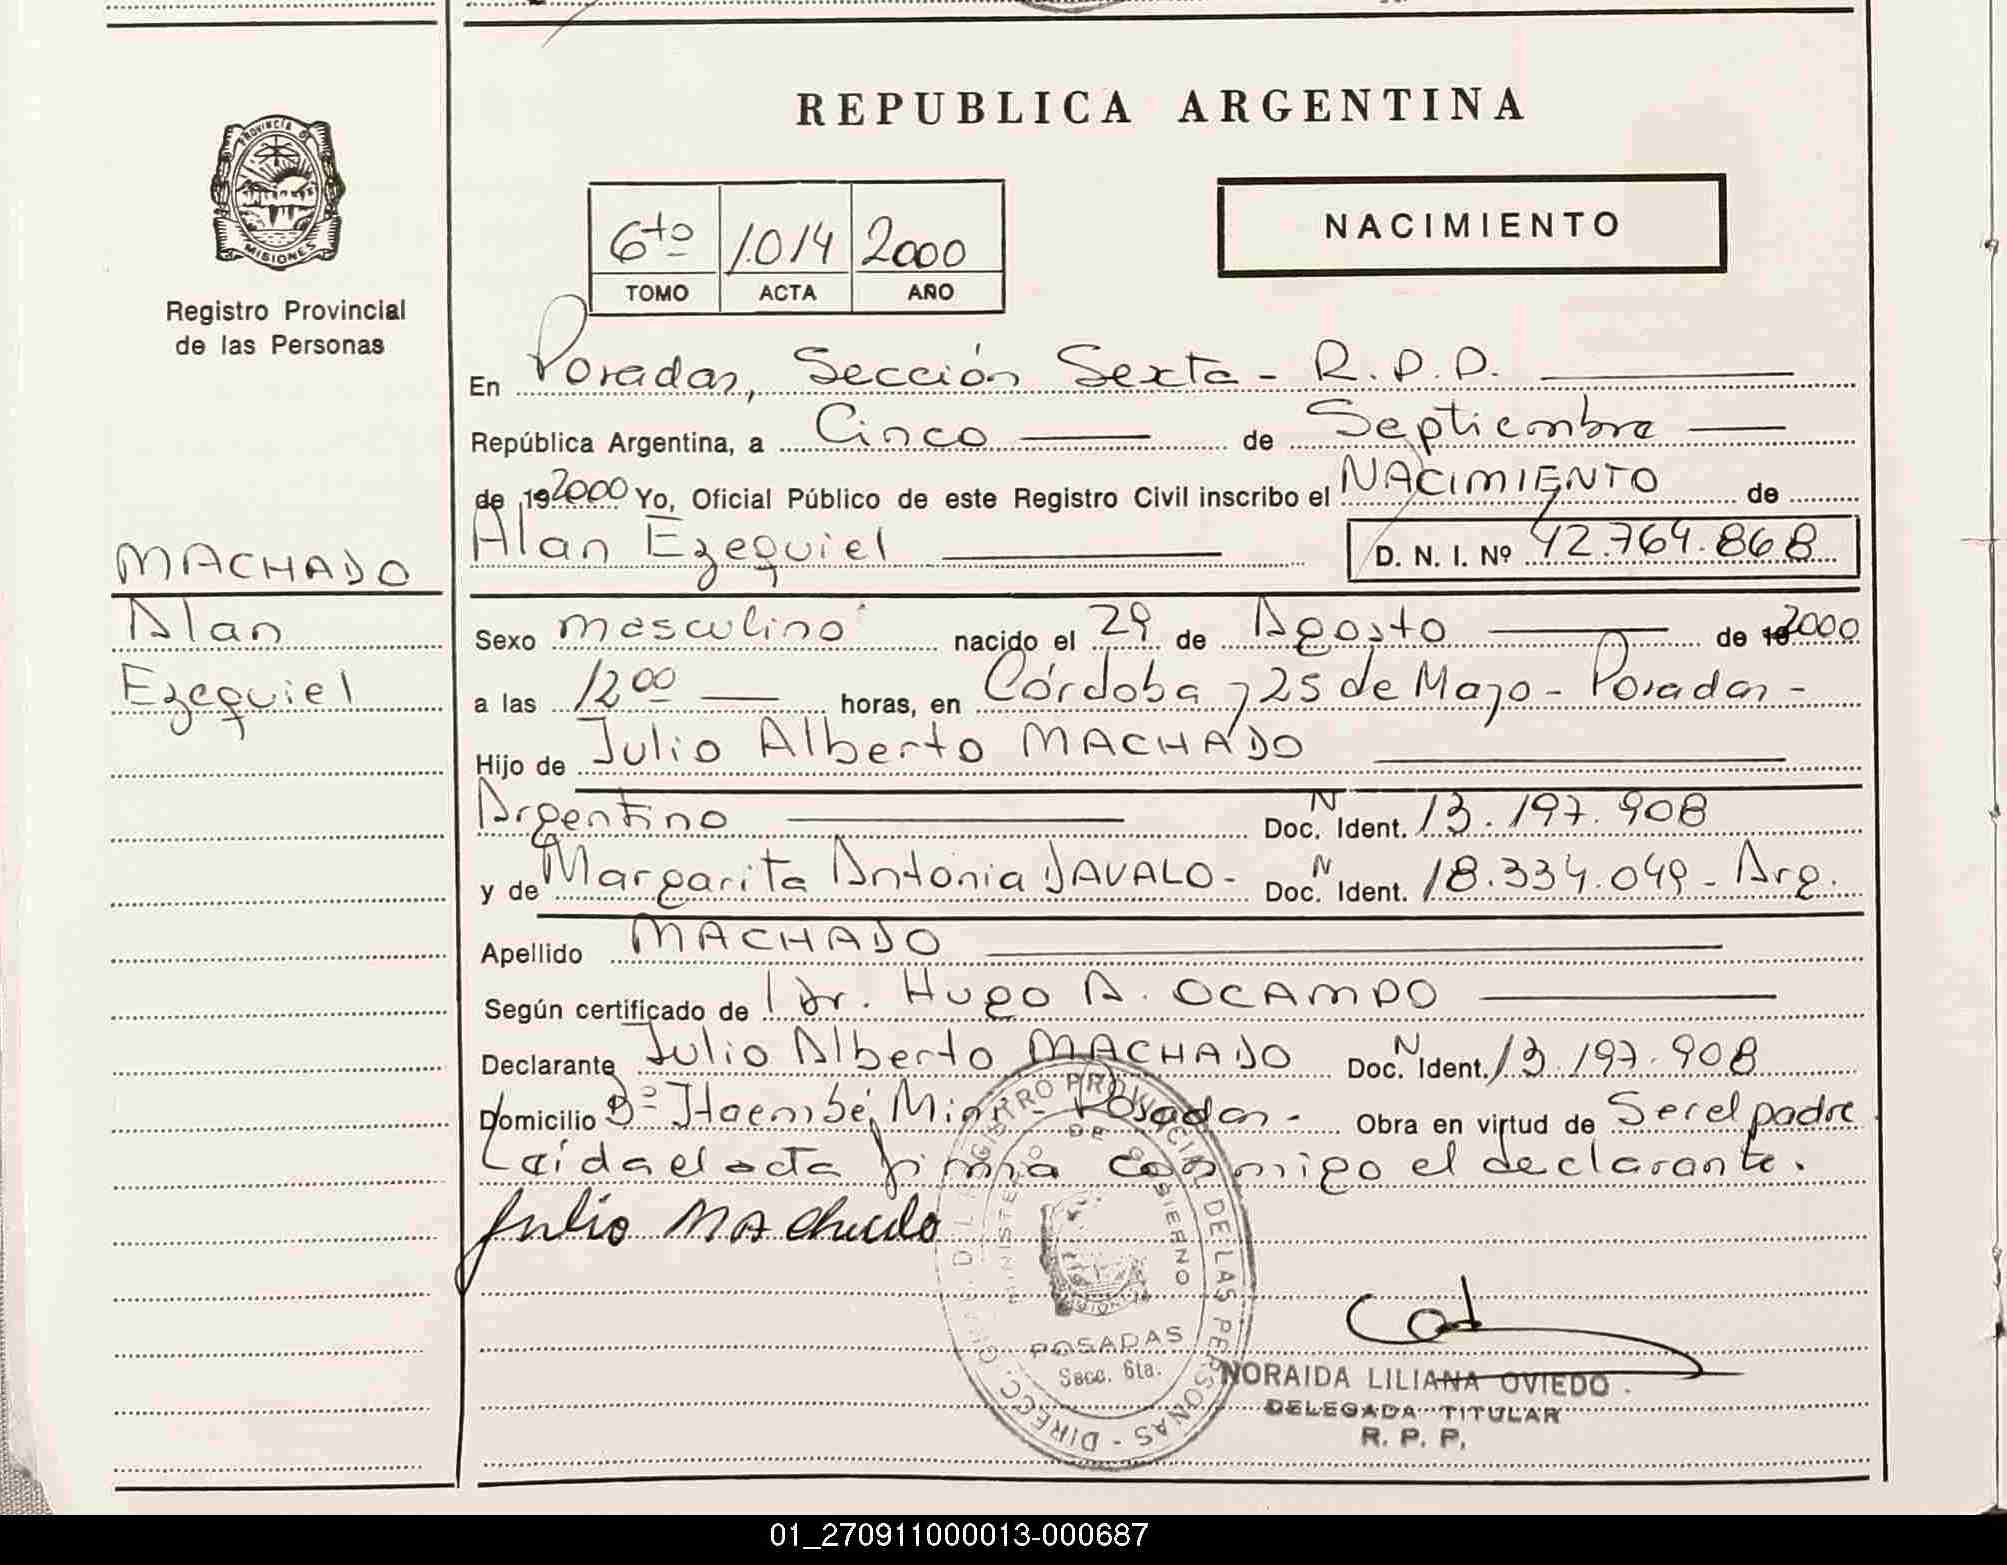 REPUBLICA ARGENTINA
PROVINCIA DE
MISIONES
Registro Provincial
de las Personas
NACIMIENTO
6to 1.014 2000
TOMO ACTA AÑO
En Posadas, Sección Sexta - R.P.P.
República Argentina, a Cinco de Septiembre
de 19 2000 Yo, Oficial Público de este Registro Civil inscribo el NACIMIENTO de
Alan Ezequiel D. N. I. Nº 42.764.868
MACHADO
Alan
Ezequiel
Sexo masculino nacido el 29 de Agosto de 19 2000
a las 12 00 horas, en Córdoba y 25 de Mayo - Posadas -
Hijo de Julio Alberto MACHADO
Argentino Doc. N Ident. 13.197.908
y de Margarita Antonia JAVALO - Doc. N Ident. 18.334.049 - Arg.
Apellido MACHADO
Según certificado de Dr. Hugo A. OCAMPO
Declarante Julio Alberto MACHADO Doc. N Ident. 13.197.908
Domicilio Bº Itaembé Miní - Posadas - Obra en virtud de Ser el padre
Leída el acta firma conmigo el declarante.
Julio MAChado
DIRECC. GRAL. DEL REGISTRO PROVINCIAL DE LAS PERSONAS
MINISTERIO DE GOBIERNO
POSADAS
Secc. 6ta.
NORAIDA LILIANA OVIEDO
DELEGADA TITULAR
R. P. P.
01_270911000013-000687